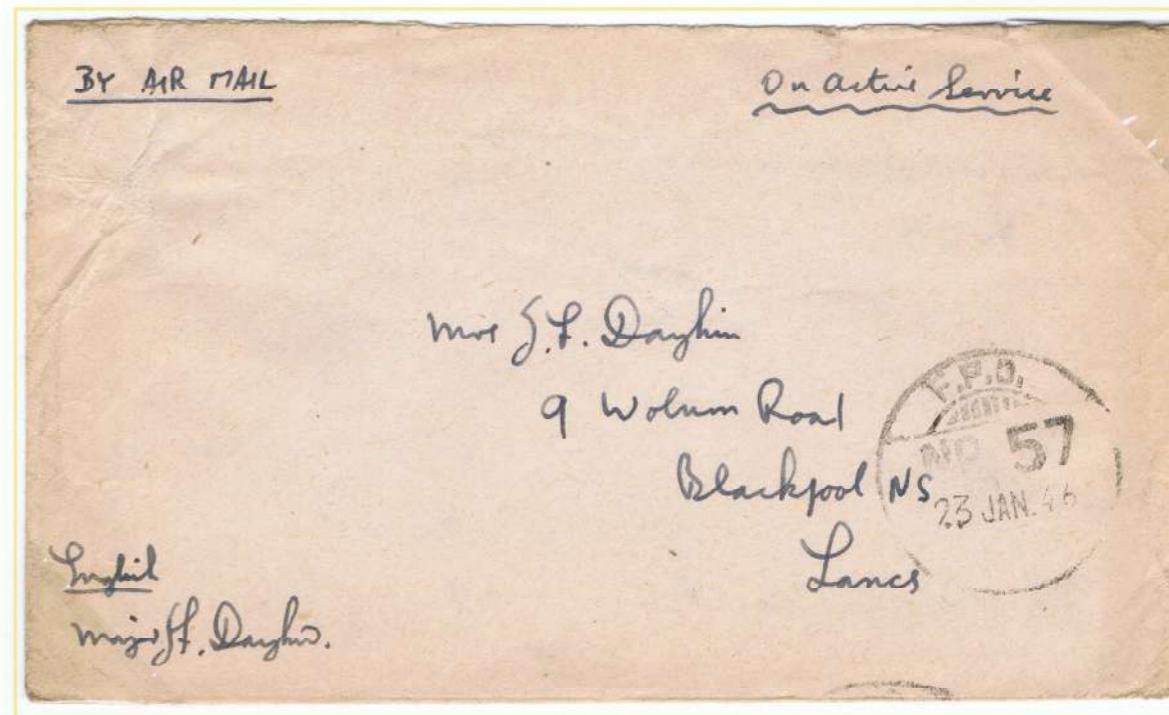 BY AIR MAIL
On Active Service
Mrs J.F. Dayhin
9 Woburn Road
Blackpool NS
Lancs
F.P.O.
NO 57
23 JAN. 46
English
Major J.F. Dayhin.